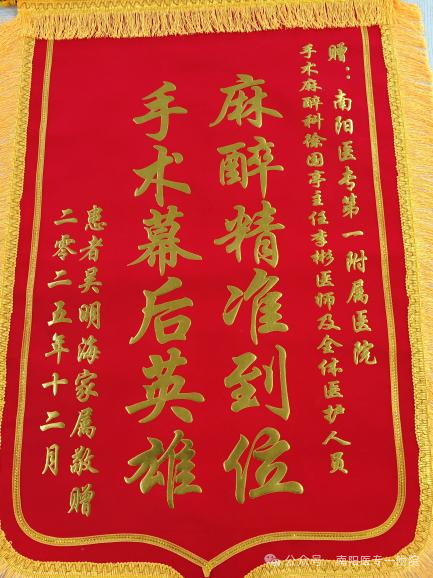 赠：南阳医专第一附属医院
手术麻醉科徐国亭主任李彬医师及全体医护人员
麻醉精准到位
手术幕后英雄
患者吴明海家属敬赠
二零二五年十二月
公众号·南阳医专一附院